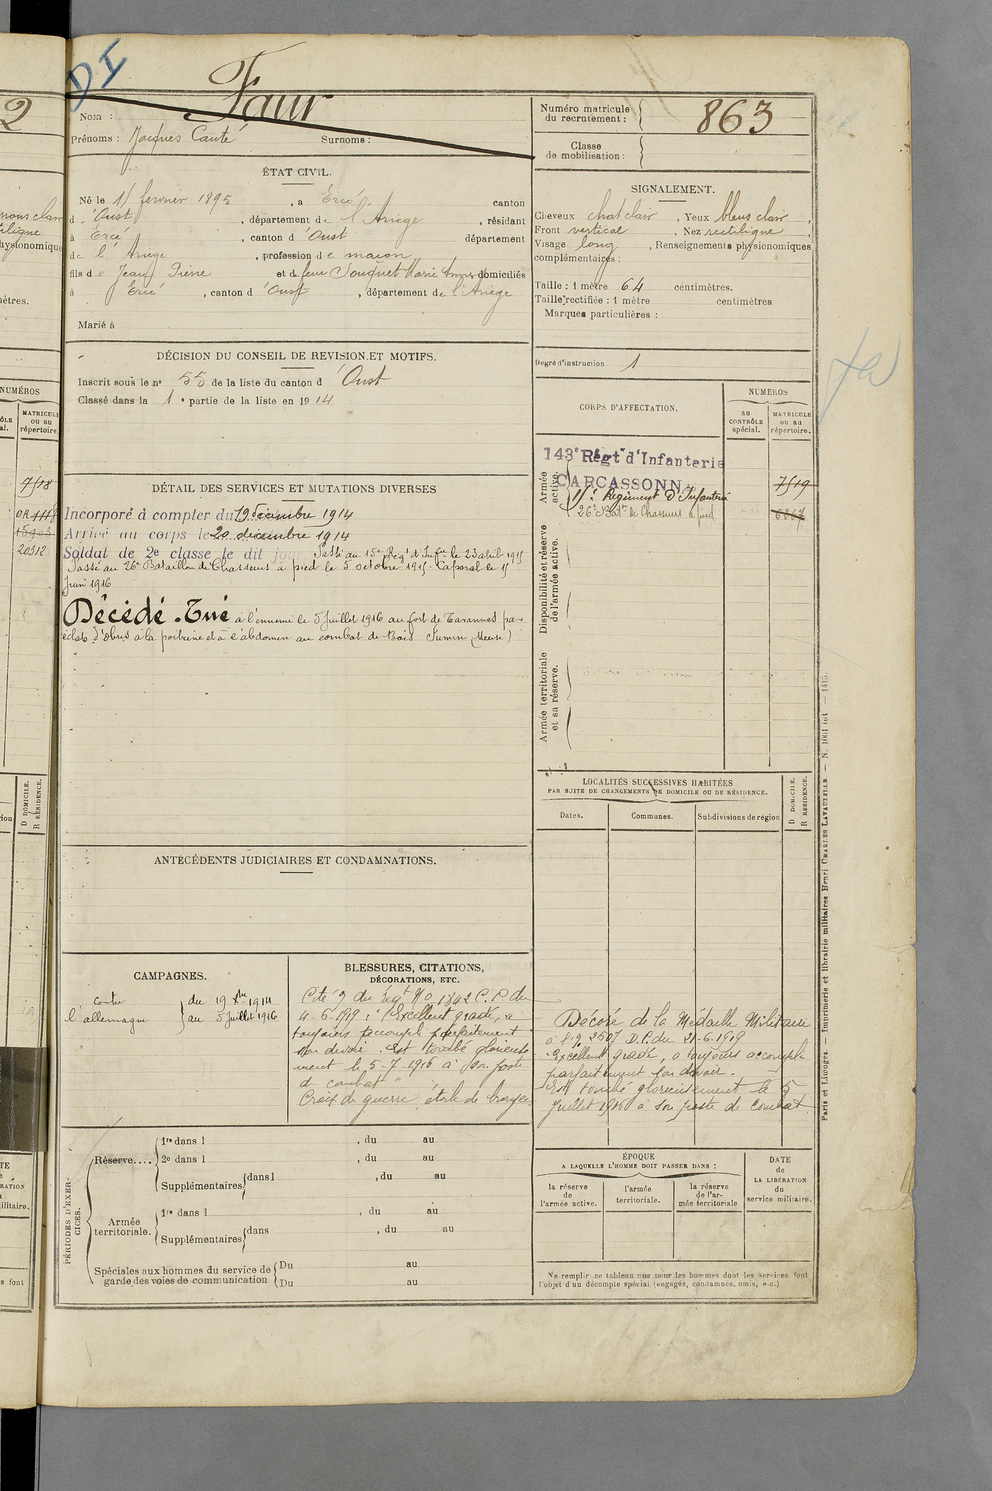 DI
Faur
Nom :
Prénoms : Jacques Canté Surnoms :
Numéro matricule
du recrutement : 863
Classe
de mobilisation :
ÉTAT CIVIL.
Né le 11 fevrier 1895, a Ercé canton
d'Oust, département de l'Ariège, résidant
à Ercé, canton d'Oust département
de l'Ariège, profession de maçon
fils de Jean Pierre et de feue Souquet Marie Anne domiciliés
à Ercé, canton d'Oust, département de l'Ariège
Marié à
SIGNALEMENT.
Cheveux chat clair, Yeux bleus clair,
Front vertical, Nez rectiligne,
Visage long, Renseignements physionomiques
complémentaires :
Taille : 1 mètre 64 centimètres.
Taille rectifiée : 1 mètre centimètres
Marques particulières :
Degré d'instruction 1
DÉCISION DU CONSEIL DE REVISION ET MOTIFS.
Inscrit sous le n° 55 de la liste du canton d'Oust
Classé dans la 1e partie de la liste en 1914
CORPS D'AFFECTATION.
NUMÉROS
au
CONTRÔLE
spécial.
MATRICULE
ou au
répertoire.
Armée
active.
143e Régt d'Infanterie
CARCASSONNE
7519
15e Régiment D'Infanterie
26e Bat. de Chasseurs à pied
6867
Disponibilité et réserve
de l'armée active.
Armée territoriale
et sa réserve.
DÉTAIL DES SERVICES ET MUTATIONS DIVERSES
Incorporé à compter du 19 décembre 1914
Arrivé au corps le 20 décembre 1914
Soldat de 2e classe le dit jour Passé au 15e Régt d'Infie le 23 abril 1915
Passé au 26e Bataillon de Chasseurs à pied le 5 octobre 1915. Caporal le 15
Juin 1916
Décédé. Tué à l'ennemi le 5 Juillet 1916 au fort de Tavannes par
éclats d'obus à la poitrine et à l'abdomen au combat de Bois Fumin (Meuse)
LOCALITÉS SUCCESSIVES HABITÉES
PAR SUITE DE CHANGEMENTS DE DOMICILE OU DE RÉSIDENCE.
Dates.
Communes.
Subdivisions de région
D DOMICILE.
R RÉSIDENCE.
ANTÉCÉDENTS JUDICIAIRES ET CONDAMNATIONS.
CAMPAGNES.
contre
l'allemagne
du 19 Xbre 1914
au 5 Juillet 1916
BLESSURES, CITATIONS,
DÉCORATIONS, ETC.
Cité O du Régt No 1842 C.P. du
4-6-1919 : "Excellent gradé, a
toujours accompli parfaitement
son devoir. Est tombé glorieuse
ment le 5-7-1916 à son poste
de combat"
Croix de guerre, étoile de bronze.
Décoré de la Médaille Militaire
D.P. du 21-6-1919
"Excellent gradé, a toujours accompli
parfaitement son devoir.
Est tombé glorieusement le 5
Juillet 1916 à son poste de combat
PÉRIODES D'EXERCICES.
Réserve....
1re dans l , du au
2e dans l , du au
Supplémentaires dans l , du au
Armée
territoriale.
1re dans l , du au
Supplémentaires dans , du au
Spéciales aux hommes du service de
garde des voies de communication
Du au
Du au
ÉPOQUE
A LAQUELLE L'HOMME DOIT PASSER DANS :
la réserve
de
l'armée active.
l'armée
territoriale.
la réserve
de l'ar-
mée territoriale
DATE
de
LA LIBÉRATION
du
service militaire.
Ne remplir ce tableau que pour les hommes dont les services font
l'objet d'un décompte spécial (engagés, condamnés, omis, etc.)
Paris et Limoges. — Imprimerie et librairie militaires Henri CHARLES-LAVAUZELLE